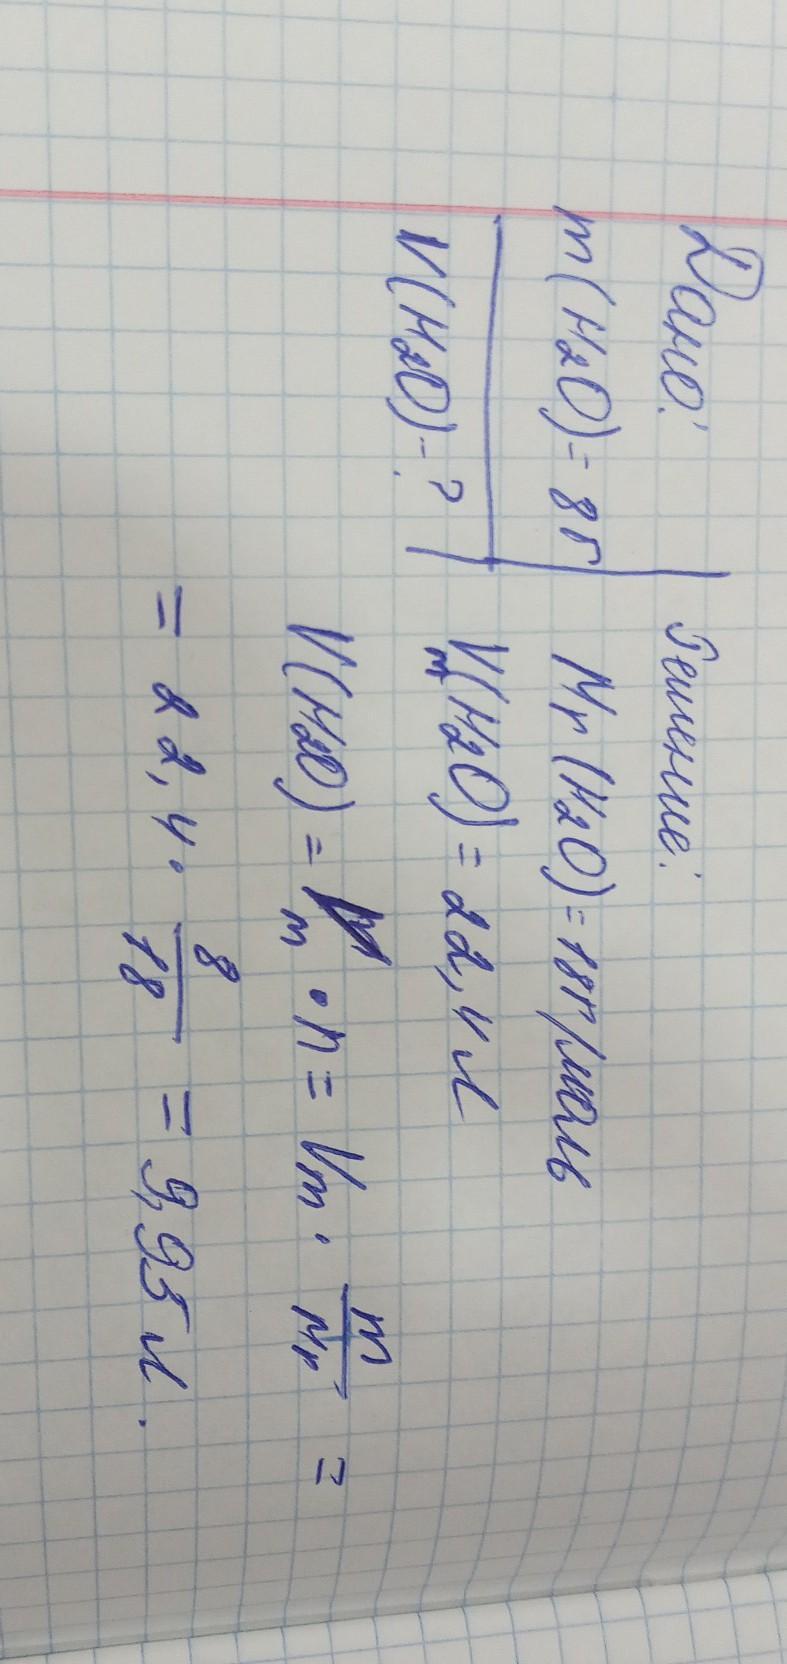 Дано:
m(H2O)=8г
V(H2O)-?
Решение:
Mr(H2O)=18г/моль
Vm(H2O)=22,4л
V(H2O)=Vm·n=Vm·m/Mr=
=22,4·8/18=9,95л.